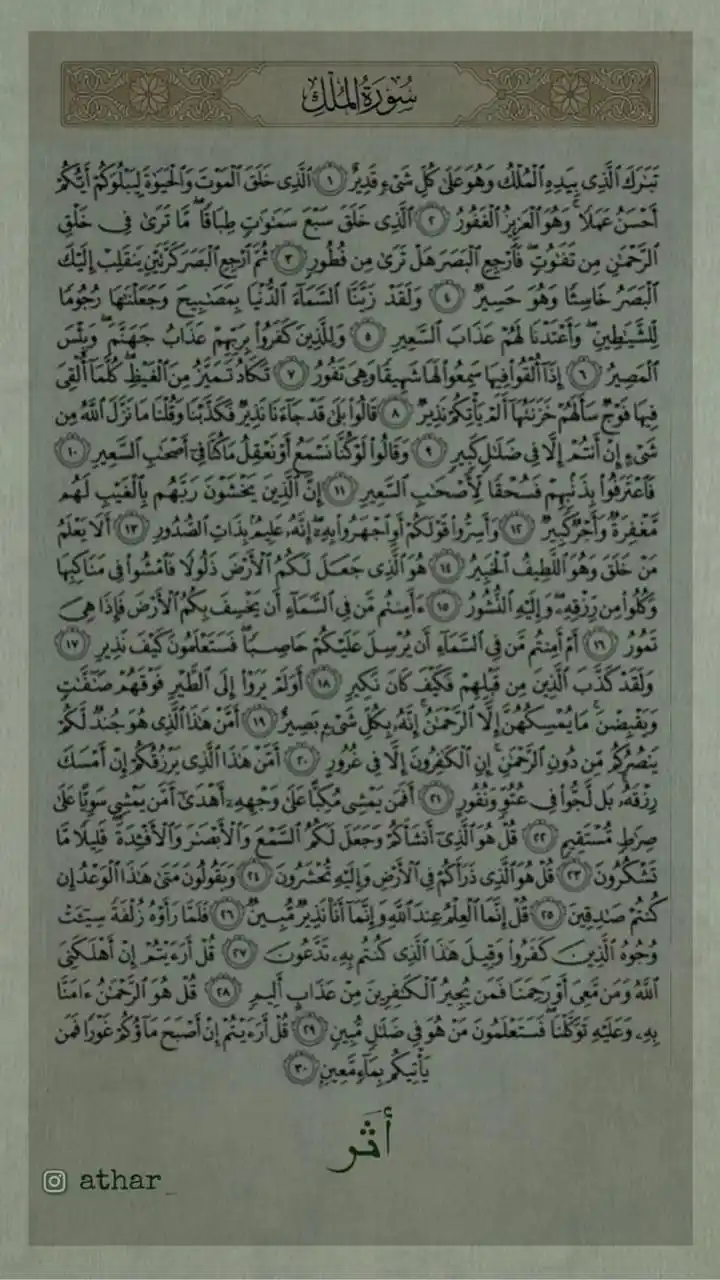 سُورَةُ المُلْكِ
تَبَٰرَكَ ٱلَّذِى بِيَدِهِ ٱلْمُلْكُ وَهُوَ عَلَىٰ كُلِّ شَىْءٍ قَدِيرٌ ١ ٱلَّذِى خَلَقَ ٱلْمَوْتَ وَٱلْحَيَوٰةَ لِيَبْلُوَكُمْ أَيُّكُمْ
أَحْسَنُ عَمَلًا ۚ وَهُوَ ٱلْعَزِيزُ ٱلْغَفُورُ ٢ ٱلَّذِى خَلَقَ سَبْعَ سَمَٰوَٰتٍ طِبَاقًا ۖ مَّا تَرَىٰ فِى خَلْقِ
ٱلرَّحْمَٰنِ مِن تَفَٰوُتٍ ۖ فَٱرْجِعِ ٱلْبَصَرَ هَلْ تَرَىٰ مِن فُطُورٍ ٣ ثُمَّ ٱرْجِعِ ٱلْبَصَرَ كَرَّتَيْنِ يَنقَلِبْ إِلَيْكَ
ٱلْبَصَرُ خَاسِئًا وَهُوَ حَسِيرٌ ٤ وَلَقَدْ زَيَّنَّا ٱلسَّمَآءَ ٱلدُّنْيَا بِمَصَٰبِيحَ وَجَعَلْنَٰهَا رُجُومًا
لِّلشَّيَٰطِينِ ۖ وَأَعْتَدْنَا لَهُمْ عَذَابَ ٱلسَّعِيرِ ٥ وَلِلَّذِينَ كَفَرُوا۟ بِرَبِّهِمْ عَذَابُ جَهَنَّمَ ۖ وَبِئْسَ
ٱلْمَصِيرُ ٦ إِذَآ أُلْقُوا۟ فِيهَا سَمِعُوا۟ لَهَا شَهِيقًا وَهِىَ تَفُورُ ٧ تَكَادُ تَمَيَّزُ مِنَ ٱلْغَيْظِ ۖ كُلَّمَآ أُلْقِىَ
فِيهَا فَوْجٌ سَأَلَهُمْ خَزَنَتُهَآ أَلَمْ يَأْتِكُمْ نَذِيرٌ ٨ قَالُوا۟ بَلَىٰ قَدْ جَآءَنَا نَذِيرٌ فَكَذَّبْنَا وَقُلْنَا مَا نَزَّلَ ٱللَّهُ مِن
شَىْءٍ إِنْ أَنتُمْ إِلَّا فِى ضَلَٰلٍ كَبِيرٍ ٩ وَقَالُوا۟ لَوْ كُنَّا نَسْمَعُ أَوْ نَعْقِلُ مَا كُنَّا فِىٓ أَصْحَٰبِ ٱلسَّعِيرِ ١٠
فَٱعْتَرَفُوا۟ بِذَنۢبِهِمْ فَسُحْقًا لِّأَصْحَٰبِ ٱلسَّعِيرِ ١١ إِنَّ ٱلَّذِينَ يَخْشَوْنَ رَبَّهُم بِٱلْغَيْبِ لَهُم
مَّغْفِرَةٌ وَأَجْرٌ كَبِيرٌ ١٢ وَأَسِرُّوا۟ قَوْلَكُمْ أَوِ ٱجْهَرُوا۟ بِهِۦٓ ۖ إِنَّهُۥ عَلِيمٌۢ بِذَاتِ ٱلصُّدُورِ ١٣ أَلَا يَعْلَمُ
مَنْ خَلَقَ وَهُوَ ٱللَّطِيفُ ٱلْخَبِيرُ ١٤ هُوَ ٱلَّذِى جَعَلَ لَكُمُ ٱلْأَرْضَ ذَلُولًا فَٱمْشُوا۟ فِى مَنَاكِبِهَا
وَكُلُوا۟ مِن رِّزْقِهِۦ ۖ وَإِلَيْهِ ٱلنُّشُورُ ١٥ ءَأَمِنتُم مَّن فِى ٱلسَّمَآءِ أَن يَخْسِفَ بِكُمُ ٱلْأَرْضَ فَإِذَا هِىَ
تَمُورُ ١٦ أَمْ أَمِنتُم مَّن فِى ٱلسَّمَآءِ أَن يُرْسِلَ عَلَيْكُمْ حَاصِبًا ۖ فَسَتَعْلَمُونَ كَيْفَ نَذِيرِ ١٧
وَلَقَدْ كَذَّبَ ٱلَّذِينَ مِن قَبْلِهِمْ فَكَيْفَ كَانَ نَكِيرِ ١٨ أَوَلَمْ يَرَوْا۟ إِلَى ٱلطَّيْرِ فَوْقَهُمْ صَٰٓفَّٰتٍ
وَيَقْبِضْنَ ۚ مَا يُمْسِكُهُنَّ إِلَّا ٱلرَّحْمَٰنُ ۚ إِنَّهُۥ بِكُلِّ شَىْءٍۭ بَصِيرٌ ١٩ أَمَّنْ هَٰذَا ٱلَّذِى هُوَ جُندٌ لَّكُمْ
يَنصُرُكُم مِّن دُونِ ٱلرَّحْمَٰنِ ۚ إِنِ ٱلْكَٰفِرُونَ إِلَّا فِى غُرُورٍ ٢٠ أَمَّنْ هَٰذَا ٱلَّذِى يَرْزُقُكُمْ إِنْ أَمْسَكَ
رِزْقَهُۥ ۚ بَل لَّجُّوا۟ فِى عُتُوٍّ وَنُفُورٍ ٢١ أَفَمَن يَمْشِى مُكِبًّا عَلَىٰ وَجْهِهِۦٓ أَهْدَىٰٓ أَمَّن يَمْشِى سَوِيًّا عَلَىٰ
صِرَٰطٍ مُّسْتَقِيمٍ ٢٢ قُلْ هُوَ ٱلَّذِىٓ أَنشَأَكُمْ وَجَعَلَ لَكُمُ ٱلسَّمْعَ وَٱلْأَبْصَٰرَ وَٱلْأَفْـِٔدَةَ ۖ قَلِيلًا مَّا
تَشْكُرُونَ ٢٣ قُلْ هُوَ ٱلَّذِى ذَرَأَكُمْ فِى ٱلْأَرْضِ وَإِلَيْهِ تُحْشَرُونَ ٢٤ وَيَقُولُونَ مَتَىٰ هَٰذَا ٱلْوَعْدُ إِن
كُنتُمْ صَٰدِقِينَ ٢٥ قُلْ إِنَّمَا ٱلْعِلْمُ عِندَ ٱللَّهِ وَإِنَّمَآ أَنَا۠ نَذِيرٌ مُّبِينٌ ٢٦ فَلَمَّا رَأَوْهُ زُلْفَةً سِيٓـَٔتْ
وُجُوهُ ٱلَّذِينَ كَفَرُوا۟ وَقِيلَ هَٰذَا ٱلَّذِى كُنتُم بِهِۦ تَدَّعُونَ ٢٧ قُلْ أَرَءَيْتُمْ إِنْ أَهْلَكَنِىَ
ٱللَّهُ وَمَن مَّعِىَ أَوْ رَحِمَنَا فَمَن يُجِيرُ ٱلْكَٰفِرِينَ مِنْ عَذَابٍ أَلِيمٍ ٢٨ قُلْ هُوَ ٱلرَّحْمَٰنُ ءَامَنَّا
بِهِۦ وَعَلَيْهِ تَوَكَّلْنَا ۖ فَسَتَعْلَمُونَ مَنْ هُوَ فِى ضَلَٰلٍ مُّبِينٍ ٢٩ قُلْ أَرَءَيْتُمْ إِنْ أَصْبَحَ مَآؤُكُمْ غَوْرًا فَمَن
يَأْتِيكُم بِمَآءٍ مَّعِينٍۭ ٣٠
أَثَر
athar_